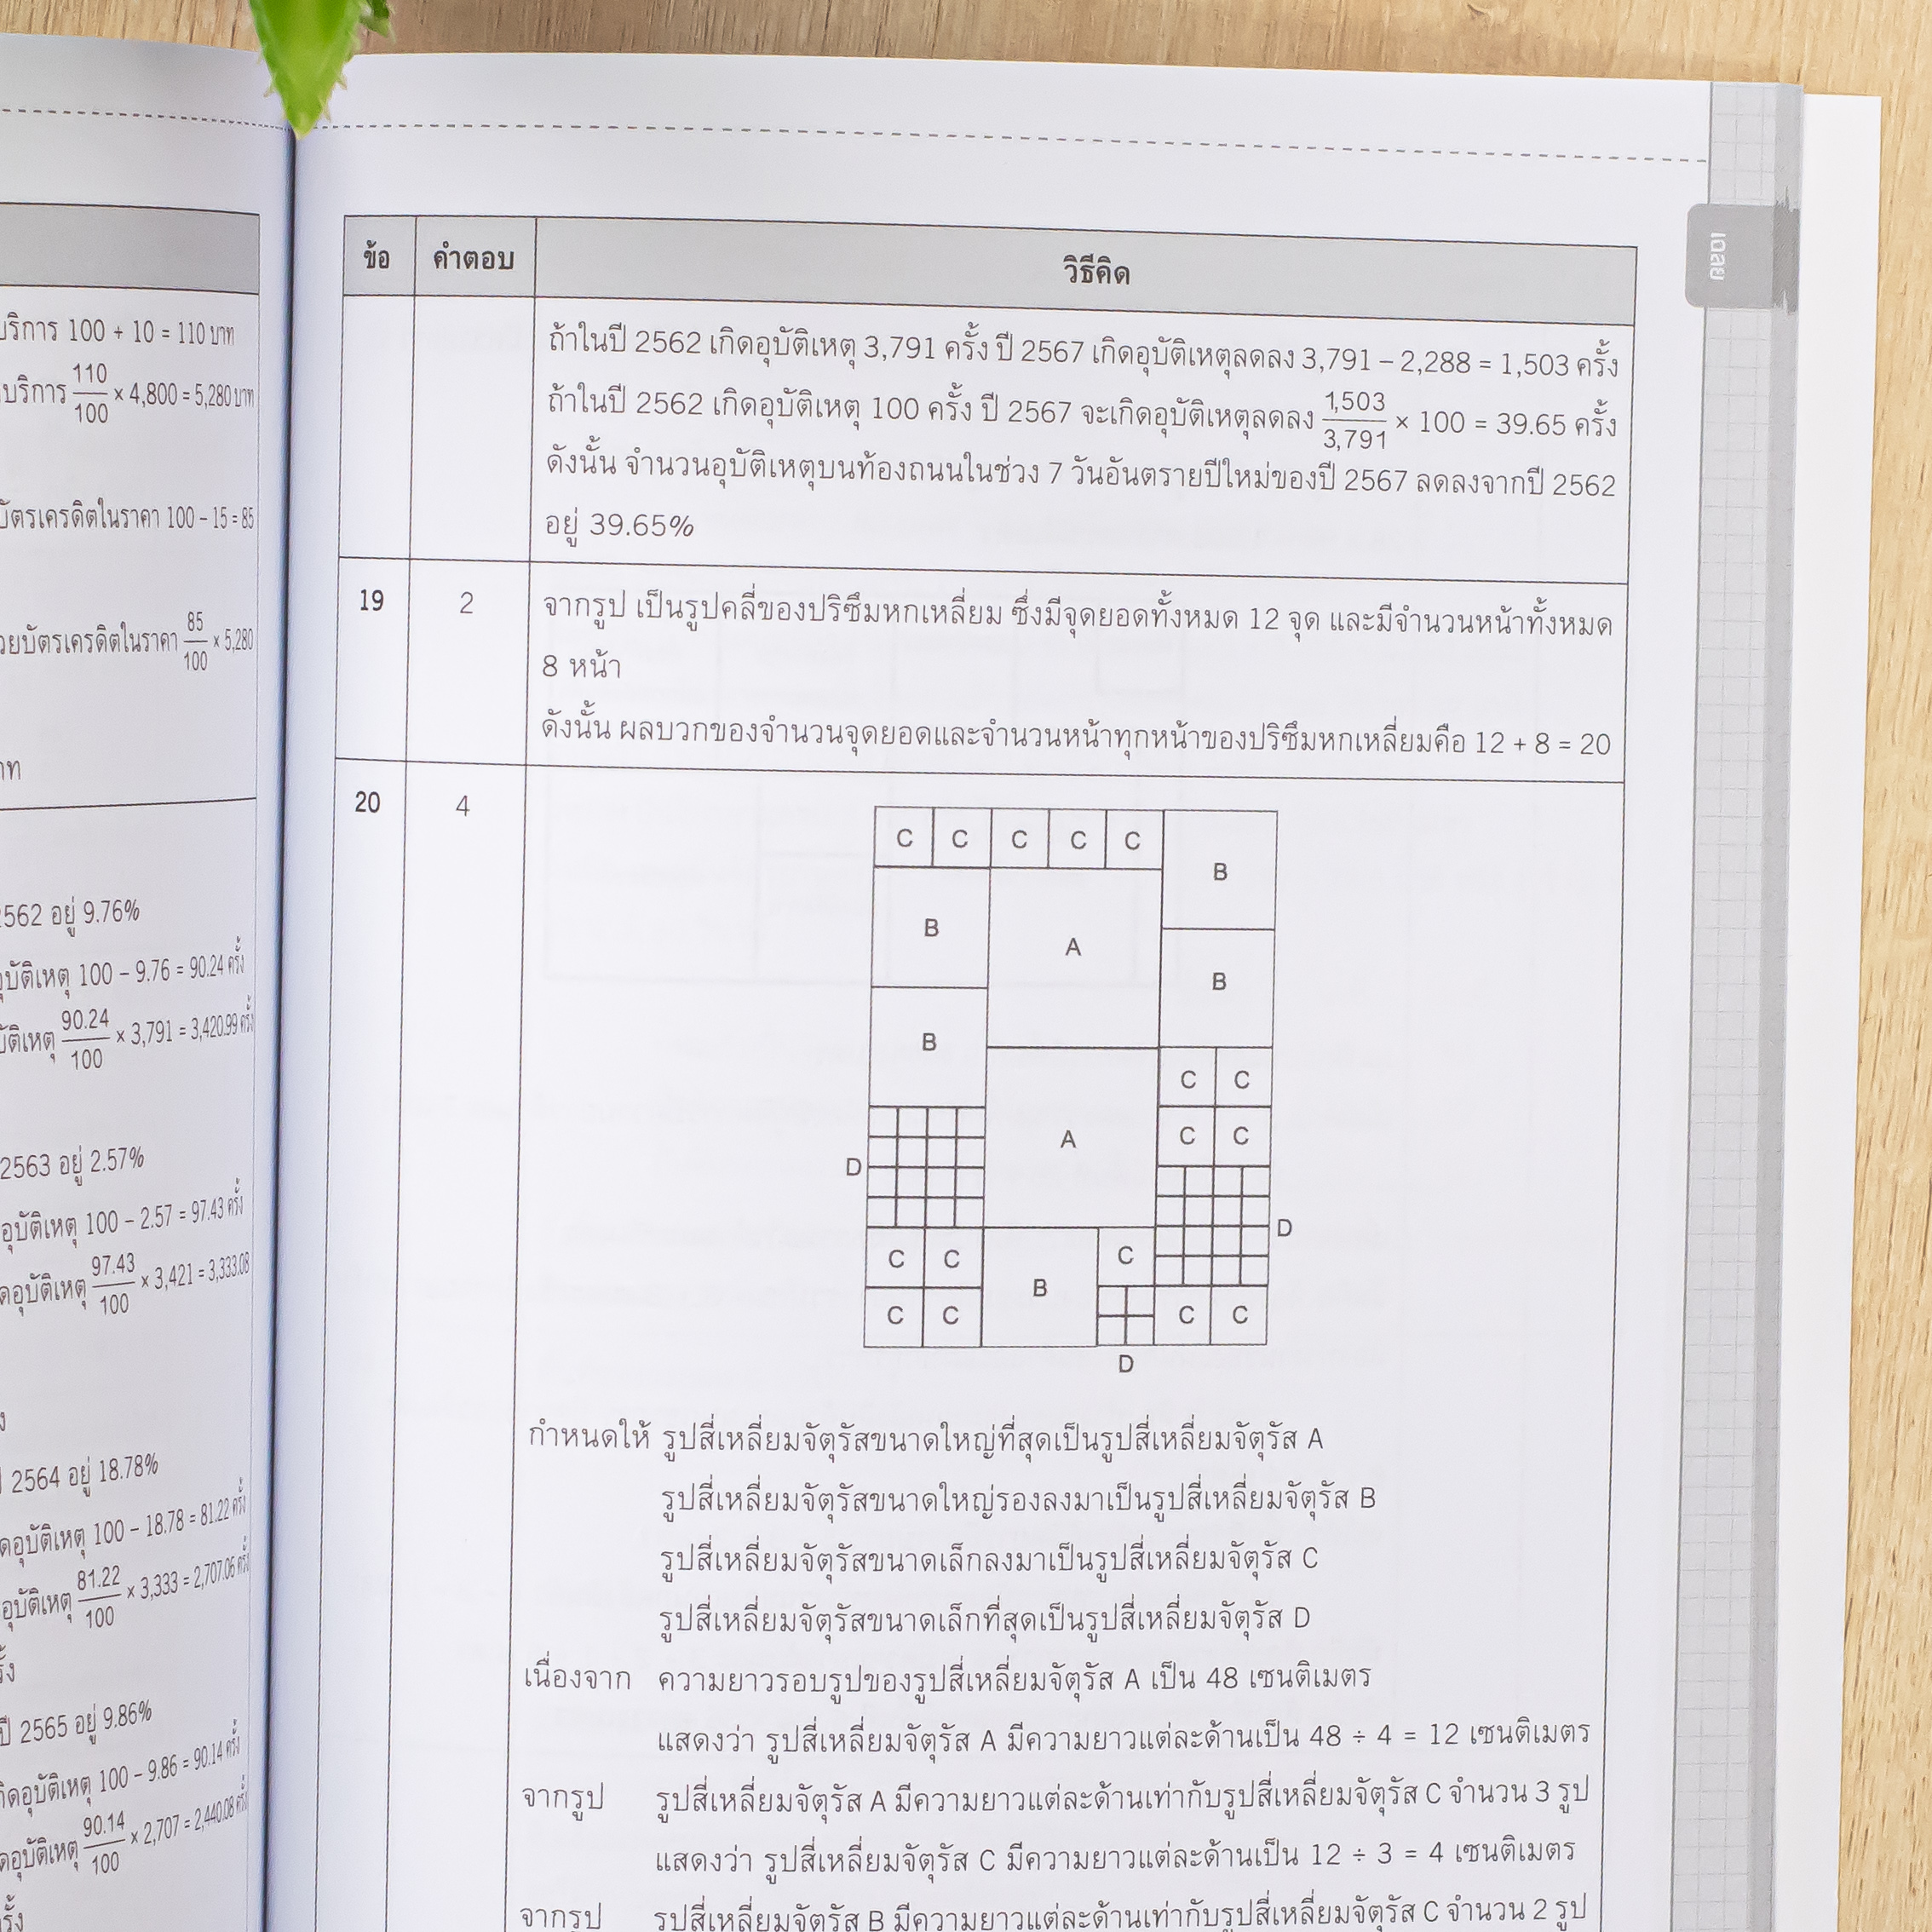 บริการ 100 + 10 = 110 บาท
บริการ 110/100 × 4,800 = 5,280 บาท
บัตรเครดิตในราคา 100 – 15 = 85
บัตรเครดิตในราคา 85/100 × 5,280
2562 อยู่ 9.76%
อุบัติเหตุ 100 – 9.76 = 90.24 ครั้ง
90.24/100 × 3,791 = 3,420.99 ครั้ง
2563 อยู่ 2.57%
อุบัติเหตุ 100 – 2.57 = 97.43 ครั้ง
อุบัติเหตุ 97.43/100 × 3,421 = 3,333.08
2564 อยู่ 18.78%
อุบัติเหตุ 100 – 18.78 = 81.22 ครั้ง
อุบัติเหตุ 81.22/100 × 3,333 = 2,707.06 ครั้ง
ปี 2565 อยู่ 9.86%
อุบัติเหตุ 100 – 9.86 = 90.14 ครั้ง
อุบัติเหตุ 90.14/100 × 2,707 = 2,440.08 ครั้ง
เฉลย
ข้อ คำตอบ วิธีคิด
ถ้าในปี 2562 เกิดอุบัติเหตุ 3,791 ครั้ง ปี 2567 เกิดอุบัติเหตุลดลง 3,791 – 2,288 = 1,503 ครั้ง
ถ้าในปี 2562 เกิดอุบัติเหตุ 100 ครั้ง ปี 2567 จะเกิดอุบัติเหตุลดลง 1,503/3,791 × 100 = 39.65 ครั้ง
ดังนั้น จำนวนอุบัติเหตุบนท้องถนนในช่วง 7 วันอันตรายปีใหม่ของปี 2567 ลดลงจากปี 2562
อยู่ 39.65%
19 2 จากรูป เป็นรูปคลี่ของปริซึมหกเหลี่ยม ซึ่งมีจุดยอดทั้งหมด 12 จุด และมีจำนวนหน้าทั้งหมด
8 หน้า
ดังนั้น ผลบวกของจำนวนจุดยอดและจำนวนหน้าทุกหน้าของปริซึมหกเหลี่ยมคือ 12 + 8 = 20
20 4
C C C C C
B
B A
B
B
C C
A C C
D
D
C C C
B
C C C C
D
กำหนดให้ รูปสี่เหลี่ยมจัตุรัสขนาดใหญ่ที่สุดเป็นรูปสี่เหลี่ยมจัตุรัส A
รูปสี่เหลี่ยมจัตุรัสขนาดใหญ่รองลงมาเป็นรูปสี่เหลี่ยมจัตุรัส B
รูปสี่เหลี่ยมจัตุรัสขนาดเล็กลงมาเป็นรูปสี่เหลี่ยมจัตุรัส C
รูปสี่เหลี่ยมจัตุรัสขนาดเล็กที่สุดเป็นรูปสี่เหลี่ยมจัตุรัส D
เนื่องจาก ความยาวรอบรูปของรูปสี่เหลี่ยมจัตุรัส A เป็น 48 เซนติเมตร
แสดงว่า รูปสี่เหลี่ยมจัตุรัส A มีความยาวแต่ละด้านเป็น 48 ÷ 4 = 12 เซนติเมตร
จากรูป รูปสี่เหลี่ยมจัตุรัส A มีความยาวแต่ละด้านเท่ากับรูปสี่เหลี่ยมจัตุรัส C จำนวน 3 รูป
แสดงว่า รูปสี่เหลี่ยมจัตุรัส C มีความยาวแต่ละด้านเป็น 12 ÷ 3 = 4 เซนติเมตร
จากรูป รูปสี่เหลี่ยมจัตุรัส B มีความยาวแต่ละด้านเท่ากับรูปสี่เหลี่ยมจัตุรัส C จำนวน 2 รูป